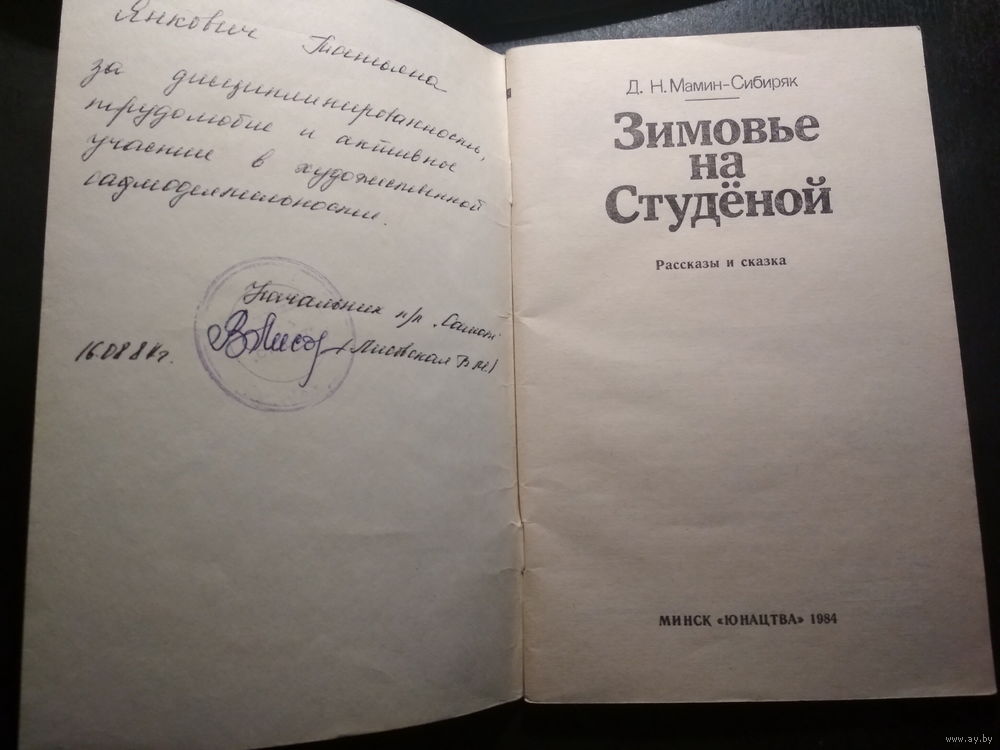 Янкович Татьяна
за дисциплинированность,
трудолюбие и активное
участие в художественной
самодеятельности.
Начальник п/л
16.08.84г. Лисовская В.М.
Д. Н. Мамин-Сибиряк
Зимовье
на
Студёной
Рассказы и сказка
МИНСК «ЮНАЦТВА» 1984
www.ay.by